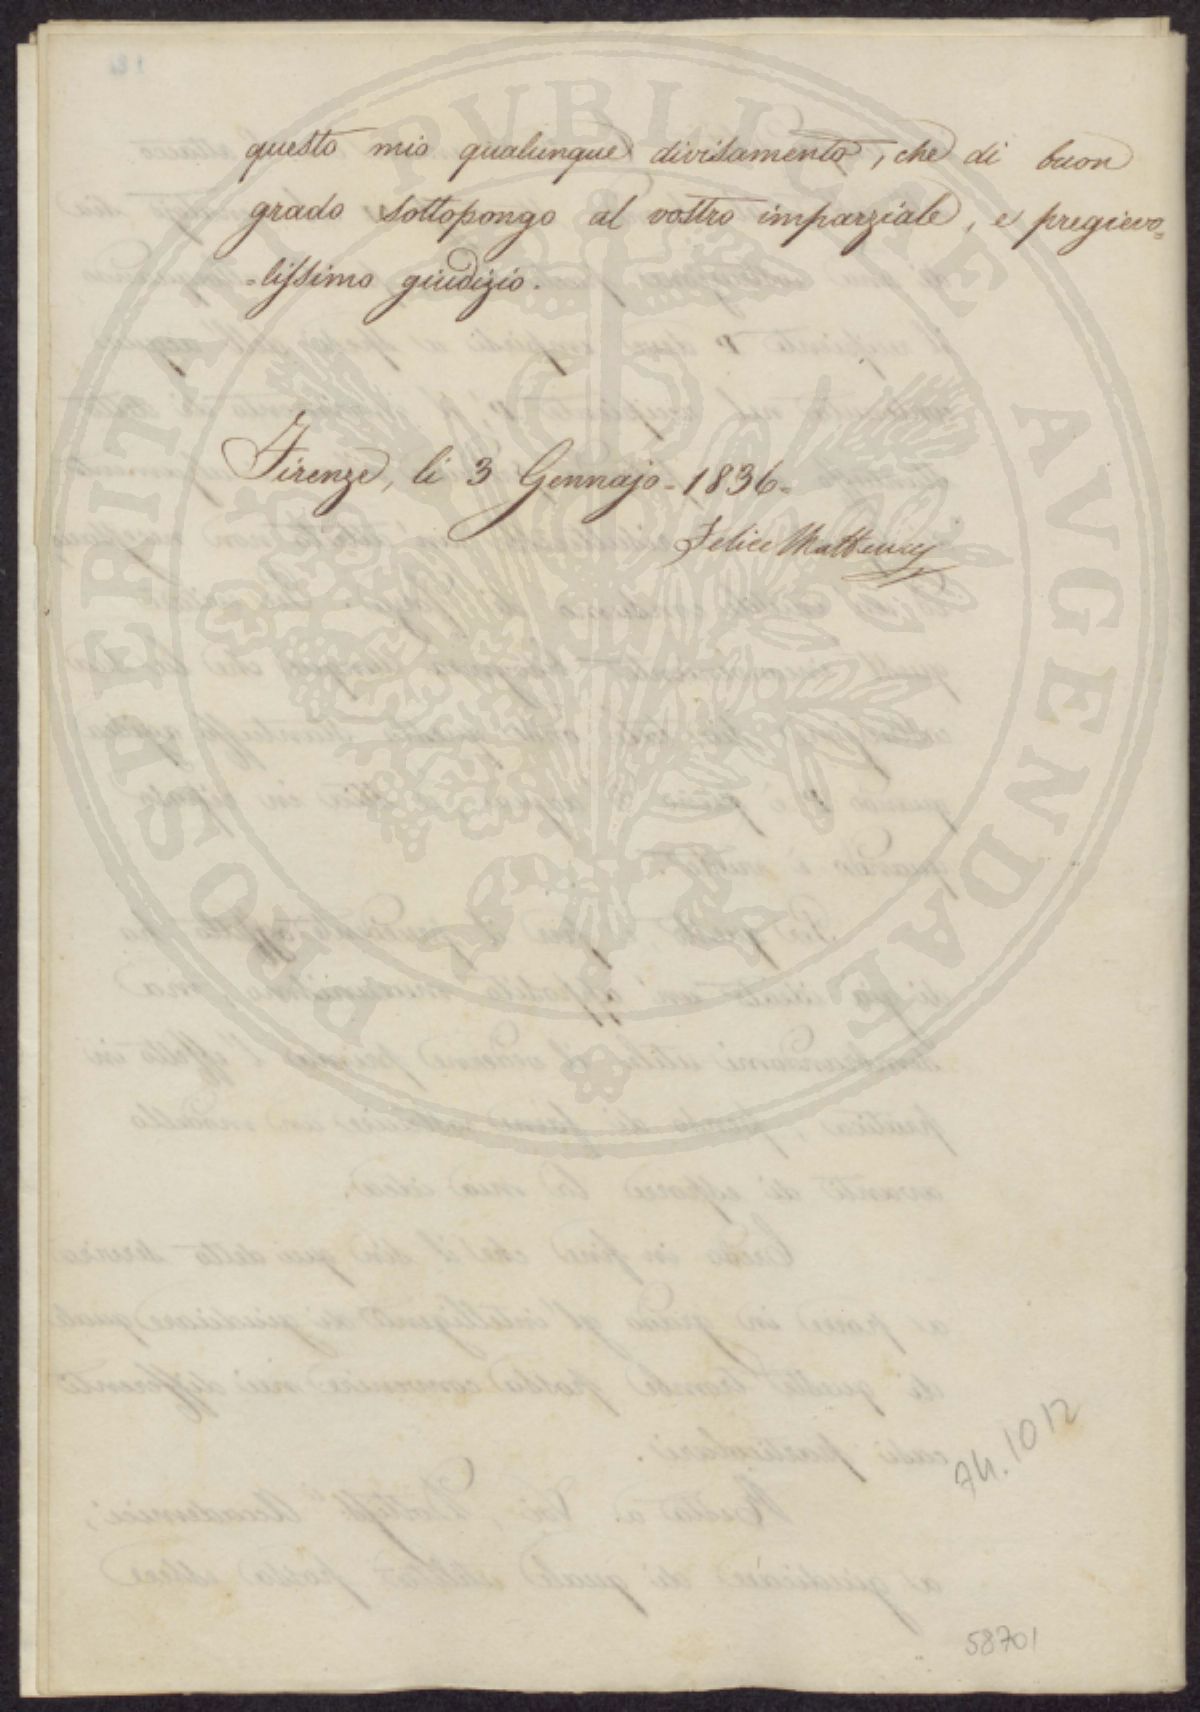 questo mio qualunque divisamento, che di buon
grado sottopongo al vostro imparziale, e pregievo=
=lissimo giudizio.
Firenze, li 3 Gennajo - 1836 -
Felice Matteucci
PROSPERITATI PUBLICAE AVGENDAE
AU. 1012
58701